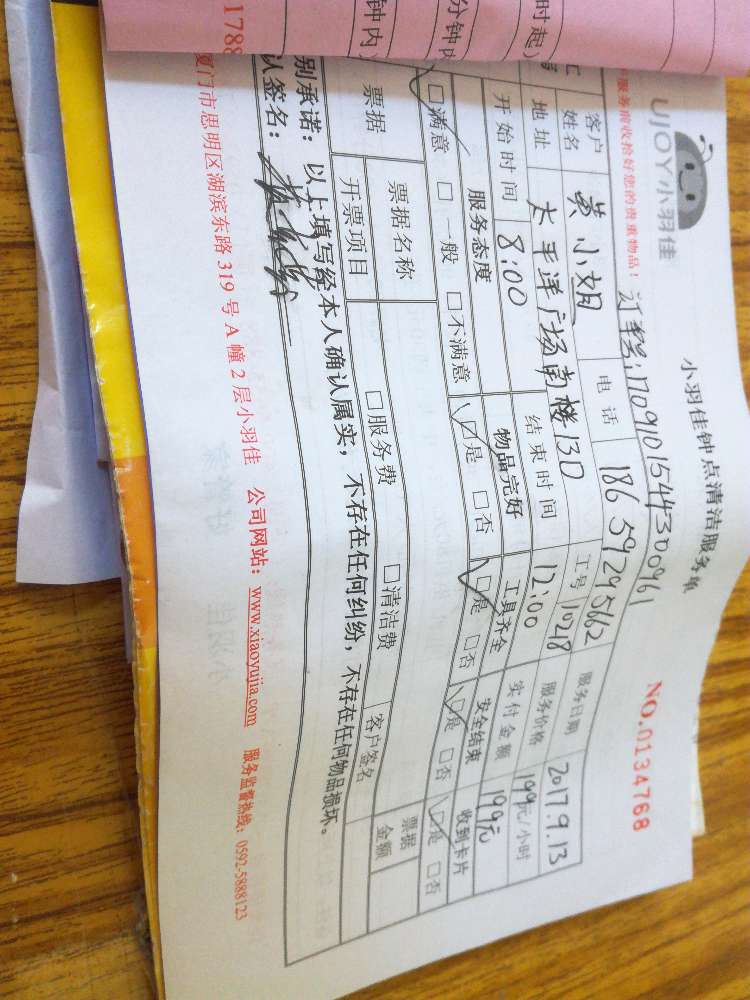 UJOY小羽佳
小羽佳钟点清洁服务单
NO.0134768
服务前收拾好您的贵重物品！
订单号:1709101544300961
客户姓名 黄小姐 电话 18659295662 服务日期 2017.9.13
地址 太平洋广场南楼13D 工号 1048 服务价格 199元/小时
开始时间 8:00 结束时间 12:00 实付金额 199元
服务态度 物品完好 工具齐全 安全结束 收到卡片
☑满意 □一般 □不满意 ☑是 □否 ☑是 □否 ☑是 □否 ☑是 □否
票据 票据名称 客户签名 票据金额
开票项目 □服务费 □清洁费
别承诺：以上填写经本人确认属实，不存在任何纠纷，不存在任何物品损坏。
认签名：
厦门市思明区湖滨东路 319 号 A 幢 2 层小羽佳 公司网站：www.xiaoyujia.com 服务监督热线：0592-5888123
时起)
分钟内
钟内
1788